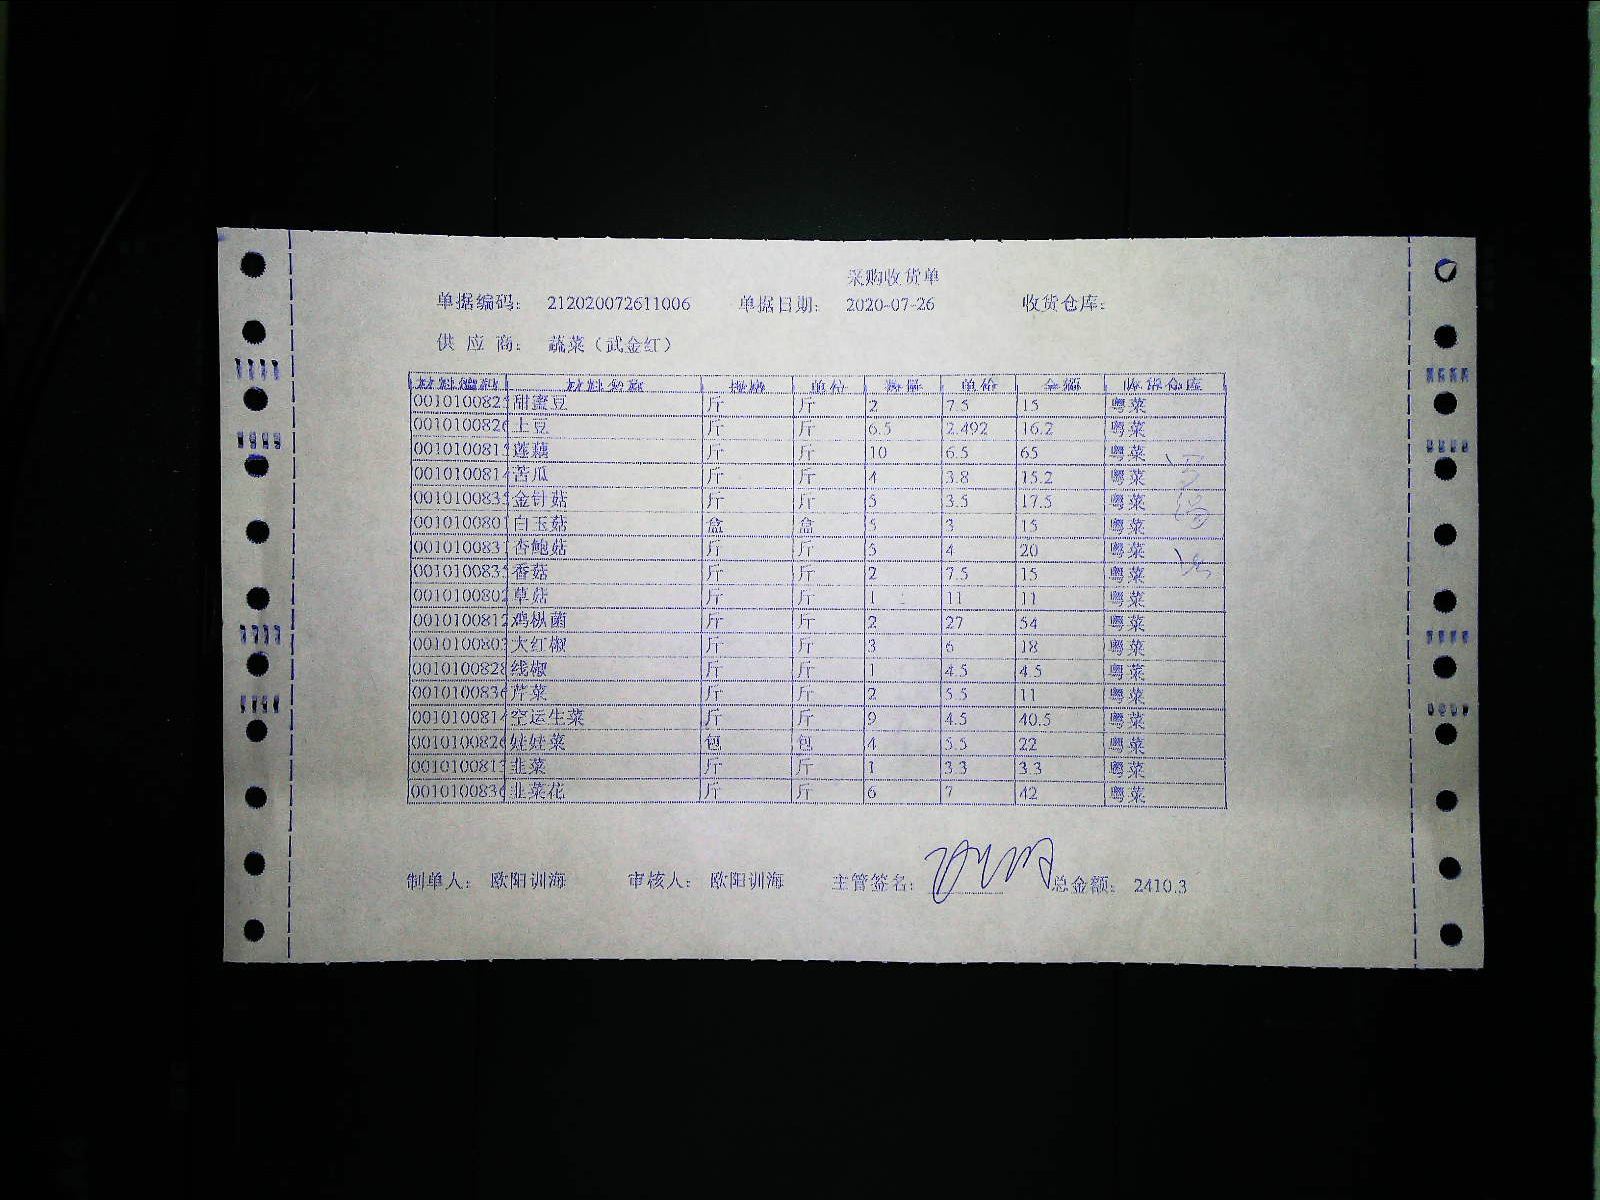 采购收货单
单据编码： 212020072611006 单据日期： 2020-07-26 收货仓库：
供 应 商： 蔬菜（武金红）
材料编码 材料名称 规格 单位 数量 单价 金额 收货仓库
001010082 甜蜜豆 斤 斤 2 7.5 15 粤菜
001010082 土豆 斤 斤 6.5 2.492 16.2 粤菜
001010081 莲藕 斤 斤 10 6.5 65 粤菜
001010081 苦瓜 斤 斤 4 3.8 15.2 粤菜
001010083 金针菇 斤 斤 5 3.5 17.5 粤菜
001010080 白玉菇 盒 盒 5 3 15 粤菜
001010083 杏鲍菇 斤 斤 5 4 20 粤菜
001010083 香菇 斤 斤 2 7.5 15 粤菜
001010080 草菇 斤 斤 1 11 11 粤菜
001010081 鸡枞菌 斤 斤 2 27 54 粤菜
001010080 大红椒 斤 斤 3 6 18 粤菜
001010082 线椒 斤 斤 1 4.5 4.5 粤菜
001010083 芹菜 斤 斤 2 5.5 11 粤菜
001010081 空运生菜 斤 斤 9 4.5 40.5 粤菜
001010082 娃娃菜 包 包 4 5.5 22 粤菜
001010081 韭菜 斤 斤 1 3.3 3.3 粤菜
001010083 韭菜花 斤 斤 6 7 42 粤菜
制单人： 欧阳训海 审核人： 欧阳训海 主管签名： 总金额： 2410.3